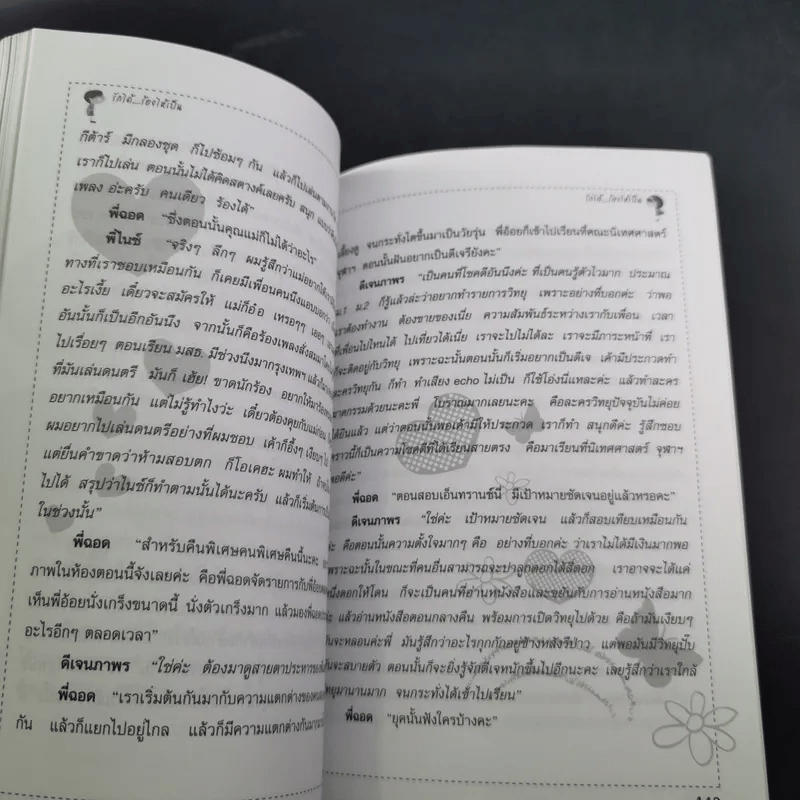 รักได้...ร้องไห้เป็น
กีต้าร์ มีกลองชุด ก็ไปซ้อมๆ กัน แล้วก็ไปเล่นตาม
เราก็ไปเล่น ตอนนั้นไม่ได้คิดสตางค์เลยครับ สนุก
เพลง อ่ะครับ คนเดียว ร้องได้"
พี่ฉอด "ซึ่งตอนนั้นคุณแม่ก็ไม่ได้ว่าอะไร"
พี่ไนซ์ "จริงๆ ลึกๆ ผมรู้สึกว่าแม่อยากให้
ทางที่เราชอบเหมือนกัน ก็เคยมีเพื่อนคนนึงแอบบอก
อะไรเงี้ย เดี๋ยวจะสมัครให้ แม่ก็อ๋อ เหรอๆๆ เออๆ
อันนั้นก็เป็นอีกอันนึง จากนั้นก็คือร้องเพลงสั่งสมมา
ไปเรื่อยๆ ตอนเรียน มสธ. มีช่วงนึงมากรุงเทพฯ แล้ว
ที่มันเล่นดนตรี มันก็ เฮ้ย! ขาดนักร้อง อยากให้มาร้อง
อยากเหมือนกัน แต่ไม่รู้ทำไงว่ะ เดี๋ยวต้องคุยกับแม่ก่อน
ผมอยากไปเล่นดนตรีอย่างที่ผมชอบ เค้าก็อึ้งๆ เงียบๆ ไป
แต่ยื่นคำขาดว่าห้ามสอบตก ก็โอเคฮะ ผมทำให้
ไปได้ สรุปว่าไนซ์ก็ทำตามนั้นได้นะครับ แล้วก็เริ่มต้น
ในช่วงนั้น"
พี่ฉอด "สำหรับคืนพิเศษคนพิเศษคืนนี้นะคะ
ภาพในห้องตอนนี้จังเลยค่ะ คือพี่ฉอดจัดรายการกับพี่อ้อย
เห็นพี่อ้อยนั่งเกร็งขนาดนี้ นั่งตัวเกร็งมาก แล้วมองพี่ฉอด
อะไรอีกๆ ตลอดเวลา"
ดีเจนภาพร "ใช่ค่ะ ต้องมาดูสายตาประหาร
พี่ฉอด "เราเริ่มต้นกันมากับความแตกต่างของ
กัน แล้วก็แยกไปอยู่ไกล แล้วก็มีความแตกต่างกัน
รักได้...ร้องไห้เป็น
เลี้ยงดู จนกระทั่งโตขึ้นมาเป็นวัยรุ่น พี่อ้อยก็เข้าไปเรียนที่คณะนิเทศศาสตร์
จุฬาฯ ตอนนั้นฝันอยากเป็นดีเจรึยังคะ"
ดีเจนภาพร "เป็นคนที่โชคดีอันนึงค่ะ ที่เป็นคนรู้ตัวไวมาก ประมาณ
ม.1 ม.2 ก็รู้แล้วล่ะว่าอยากทำรายการวิทยุ เพราะอย่างที่บอกค่ะ ว่าพอ
เราต้องทำงาน ต้องขายของเนี่ย ความสัมพันธ์ระหว่างเรากับเพื่อน เวลา
ที่เพื่อนไปไหนได้ ไปเที่ยวได้เนี่ย เราจะไปไม่ได้ละ เราจะมีภาระหน้าที่ เรา
ก็จะติดอยู่กับวิทยุ เพราะฉะนั้นตอนนั้นก็เริ่มอยากเป็นดีเจ เค้ามีประกวดทำ
ละครวิทยุกัน ก็ทำ ทำเสียง echo ไม่เป็น ก็ใช้โอ่งนี่แหละค่ะ แล้วทำละคร
ฆาตกรรมด้วยนะคะพี่ โบราณมากเลยนะคะ คือละครวิทยุปัจจุบันไม่ค่อย
ได้ยินแล้ว แต่ว่าตอนนั้นพอเค้ามีให้ประกวด เราก็ทำ สนุกดีค่ะ รู้สึกชอบ
คราวนี้ก็เป็นความโชคดีที่ได้เรียนสายตรง คือมาเรียนที่นิเทศศาสตร์ จุฬาฯ
พอดีค่ะ"
พี่ฉอด "ตอนสอบเอ็นทรานซ์นี่ มีเป้าหมายชัดเจนอยู่แล้วหรอคะ"
ดีเจนภาพร "ใช่ค่ะ เป้าหมายชัดเจน แล้วก็สอบเทียบเหมือนกัน
ค่ะ คือตอนนั้นความตั้งใจมากๆ คือ อย่างที่บอกค่ะ ว่าเราไม่ได้มีเงินมากพอ
เพราะฉะนั้นในขณะที่คนอื่นสามารถจะปาลูกดอกได้สี่ดอก เราอาจจะได้แค่
ดอกให้โดน ก็จะเป็นคนที่อ่านหนังสือและขยันกับการอ่านหนังสือมาก
ค่ะ แล้วอ่านหนังสือตอนกลางคืน พร้อมการเปิดวิทยุไปด้วย คือถ้ามันเงียบๆ
จะหลอนค่ะพี่ มันรู้สึกว่าอะไรกุกกักอยู่ข้างหลังรึป่าว แต่พอมันมีวิทยุปั๊บ
จะสบายตัว ตอนนั้นก็จะยิ่งรู้จักดีเจหนักขึ้นไปอีกนะคะ เลยรู้สึกว่าเราใกล้
วิทยุมานานมาก จนกระทั่งได้เข้าไปเรียน"
พี่ฉอด "ยุคนั้นฟังใครบ้างคะ"